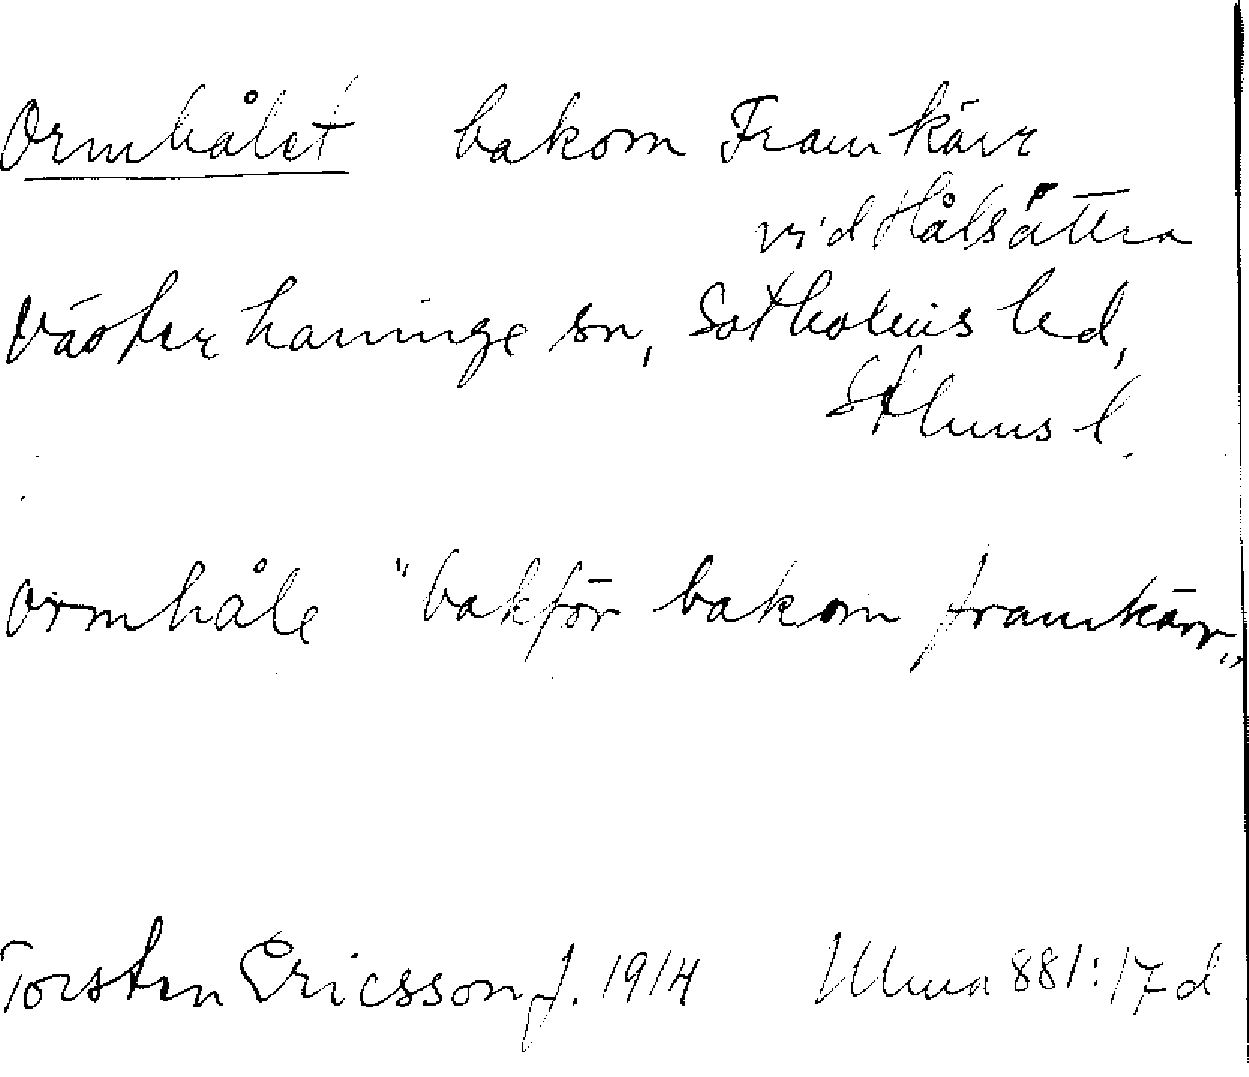 Ormhålet bakom Framkärr
vid Hålsättra
Västerhaninge sn, Sotholms hd,
Sthlms l.
ormhåle "bakför bakom framkärr"
Torsten Ericsson f. 1914 Ulma 881:17 d